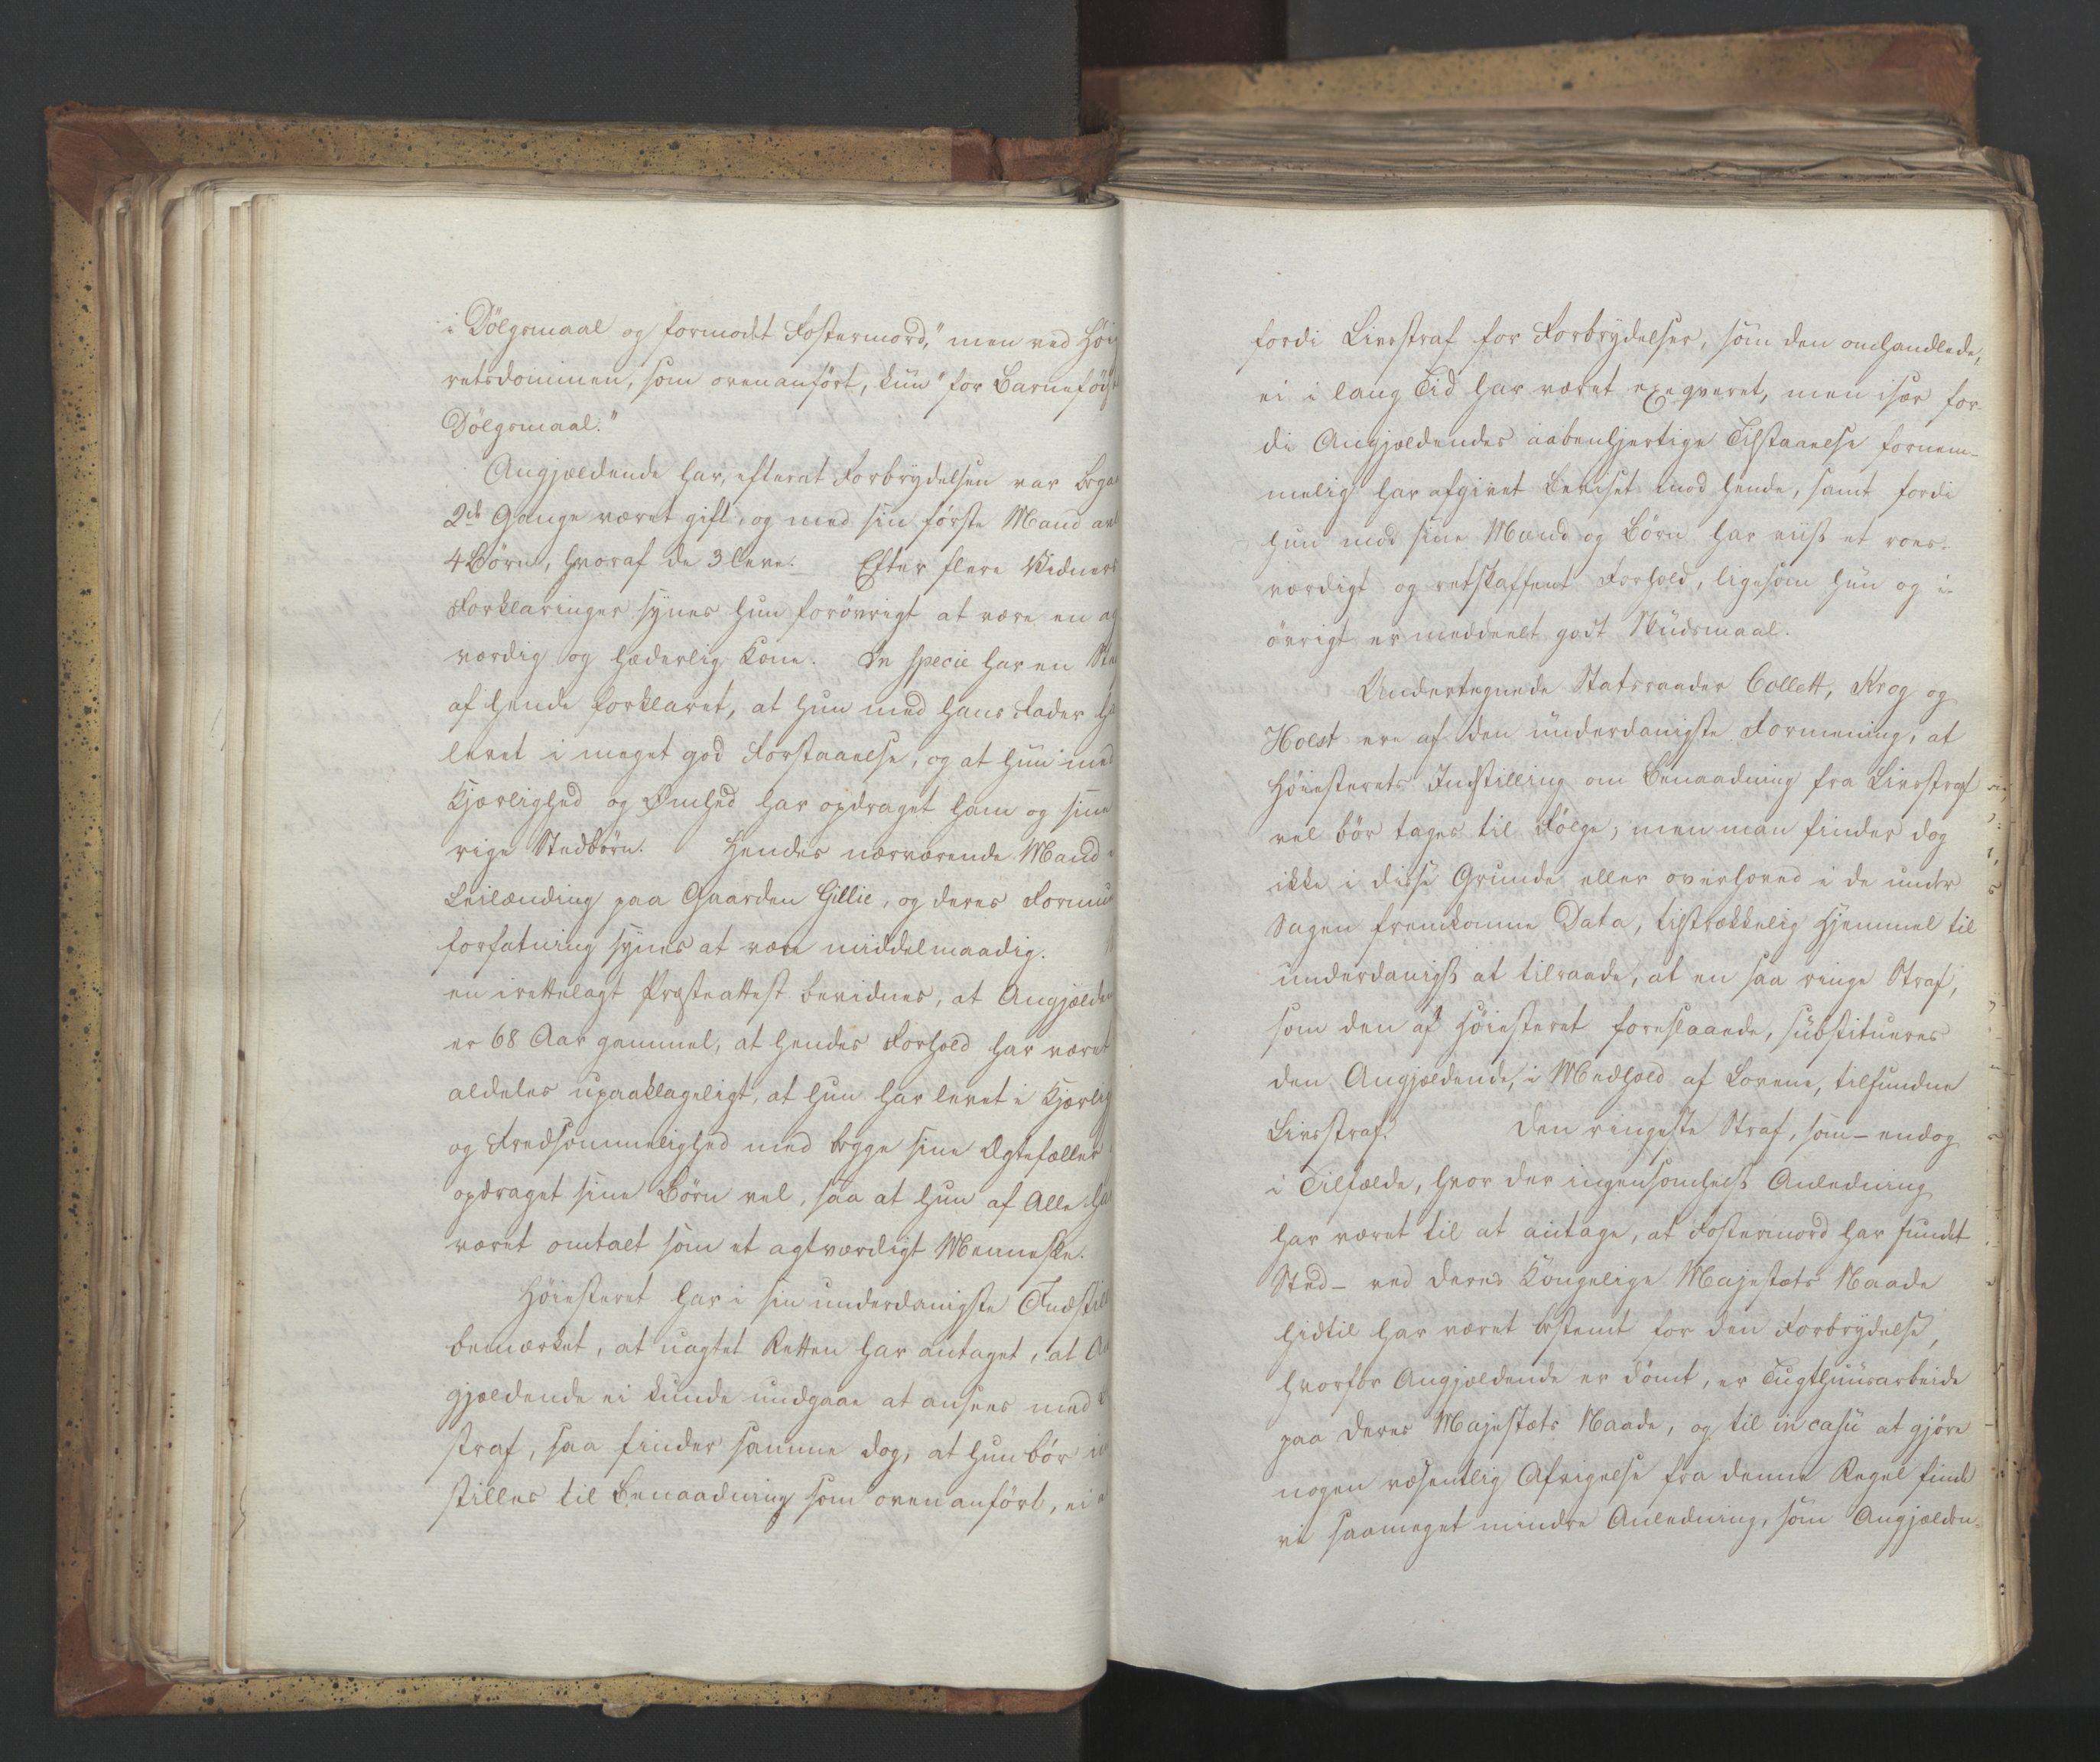 i Dölgsmaal og formodet Fostermord," men ved Höie
retsdommen, som ovenanfört, kun "for Barnefödsel
Dölgsmaal."
Angjældende har, efterat Forbrydelsen var bega
2de Gange været gift, og med sin förste Mand avl
4 Börn, hvoraf de 3 leve. Efter flere Vidners
Forklaringer synes hun forövrigt at være en ag
værdig og hæderlig Kone. In specie har en Ste
af hende forklaret, at hun med hans Fader ha
levet i meget god Forstaaelse, og at hun med
Kjærlighed og Ömhed har opdraget ham og sine
rige Stedbörn. Hendes nærværende Mand e
Leilænding paa Gaarden Gillie, og deres Formue
forfatning synes at være middelmaadig.
en irettelagt Præsteattest bevidnes, at Angjælden
er 68 Aar gammel, at hendes Forhold har været
aldeles upaaklageligt, at hun har levet i Kjærlig
og Fredsommelighed med begge sine Ægtefæller
opdraget sine Börn vel, saa at hun af Alle ha
været omtalt som et agtværdigt Menneske.
Höiesteret har i sin underdanigste Indstill
bemærket, at uagtet Retten har antaget, at An
gjældende ei kunde undgaae at ansees med
straf, saa finder samme dog, at hun bör in
stilles til Benaadning som ovenanfört, ei
fordi Livsstraf for Forbrydelser, som den omhandlede,
ei i lang Tid har været exeqveret, men især for-
di Angjældendes aabenhjertige Tilstaaelse fornem-
melig har afgivet Beviset mod hende, samt fordi
hun mod sine Mænd og Börn har viist et roes-
værdigt og retskaffent Forhold, ligesom hun og i
övrigt er meddeelt godt Skudsmaal.
Undertegnede Statsraader Collett, Krog og
Holst ere af den underdanigste Formening, at
Höiesterets Indstilling om Benaadning fra Livsstraf
vel bör tages til Fölge, men man finder dog
ikke i disse Grunde eller overhoved i de under
Sagen fremkomne Data, tilstrækkelig Hjemmel til
underdanigst at tilraade, at en saa ringe Straf,
som den af Höiesteret foreslaaede, substitueres
den Angjældende, i Medhold af Lovene, tilfundne
Livsstraf. Den ringeste Straf, som - endog
i Tilfælde, hvor der ingensomhelst Anledning
har været til at antage, at Fostermord har fundet
Sted - ved Deres Kongelige Majestæts Naade
hidtil har været bestemt for den Forbrydelse,
hvorfor Angjældende er dömt, er Tugthuusarbeide
paa Deres Majestæts Naade, og til in casu at gjöre
nogen væsentlig Afvigelse fra denne Regel finde
vi saameget mindre Anledning, som Angjælden-